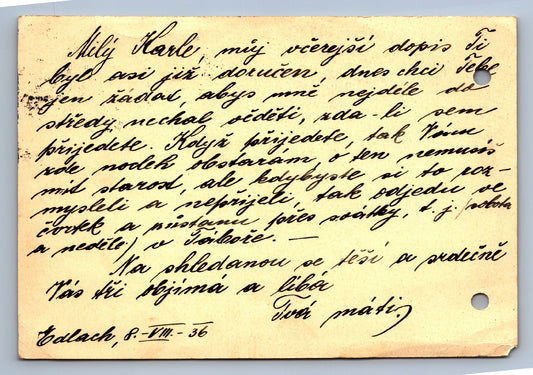 Milý Karle, můj včerejší dopis Ti
byl asi již doručen, dnes chci Tebe
jen žádat, abys mně nejdéle do
středy nechal věděti, zda-li sem
přijedete. Když přijedete, tak Vám
zde nocleh obstarám, o ten nemusíš
mít starost, ale kdybyste si to roz-
mysleli a nepřijeli, tak odjedu ve
čtvrtek a zůstanu přes svátky, t. j. (sobota
a neděle) v Táboře. —
Na shledanou se těší a srdečně
Vás tři objímá a líbá
Tvá máti.
Edlach, 8.-VIII.-36